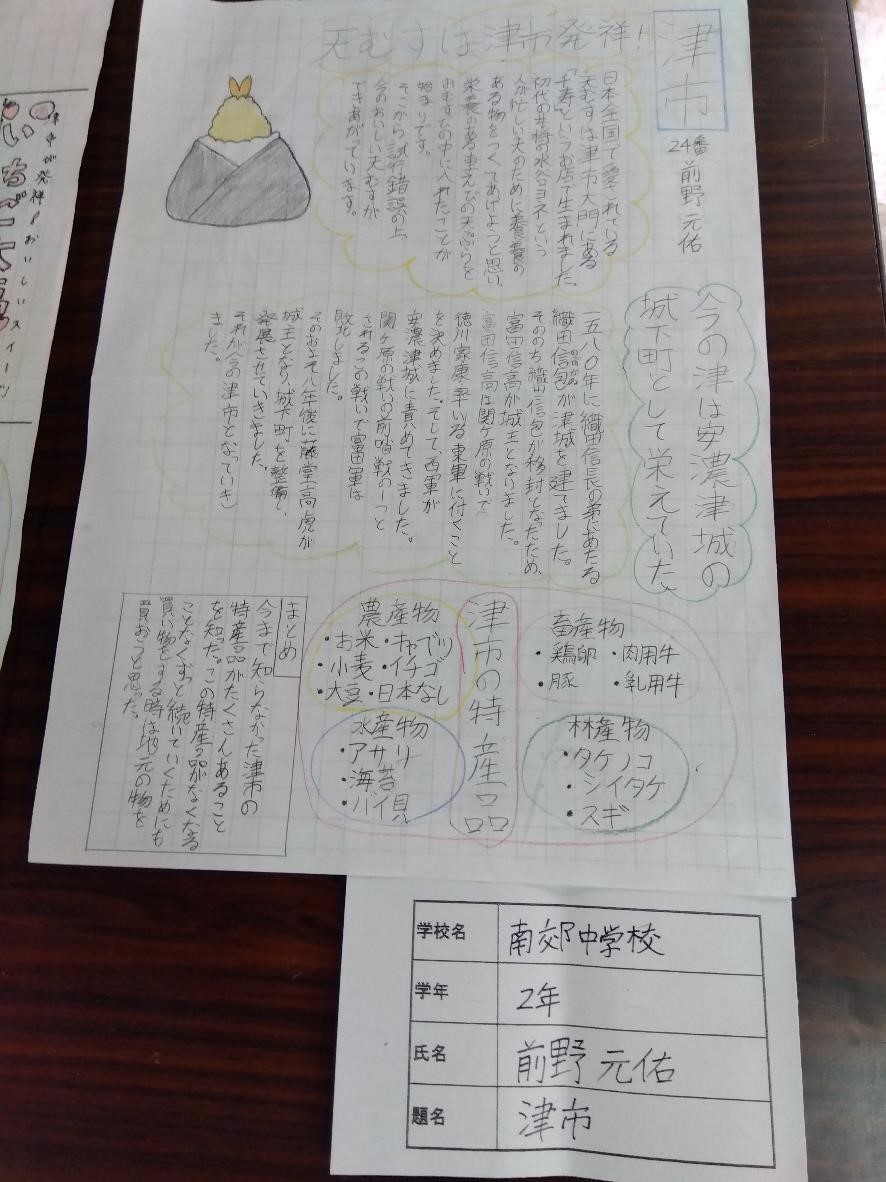 津市
24番 前野 元佑
天むすは津市発祥!
日本全国で愛されている
天むすは津市大門にある
「千寿」というお店で生まれました。
初代の女将の水谷ヨネという
人が忙しい夫のために栄養の
ある物をつくてあげようと思い、
栄養のある車えびの天ぷらを
おむすびの中に入れたことが
始まりです。
そこから試行錯誤の上、
今のおいしい天むすが
できあがっています。
今の津は安濃津城の
城下町として栄えていた
一五八〇年に織田信長の弟にあたる
織田信包が津城を建てました。
そののち織田信包が移封となったため、
富田信高が城主となりました。
富田信高は関ケ原の戦いで
徳川家康率いる東軍に付くこと
を決めました。そして、西軍が
安濃津城に責めてきました。
関ケ原の戦いの前哨戦の一つと
されるこの戦いで富田軍は
敗北しました。
そのおよそ八年後に藤堂高虎が
城主となり、城下町を整備し、
発展させていきました。
それが今の津市となっていき
ました。
津市の特産品
畜産物
・鶏卵 ・肉用牛
・豚 ・乳用牛
林産物
・タケノコ
・シイタケ
・スギ
農産物
・お米 ・キャベツ
・小麦 ・イチゴ
・大豆 ・日本なし
水産物
・アサリ
・海苔
・バイ貝
まとめ
今まで知らなかった津市の
特産品がたくさんあること
を知った。この特産品がなくなる
ことなくずっと続いていくためにも
買い物をする時は地元の物を
買おうと思った。
学校名 南郊中学校
学年 2年
氏名 前野 元佑
題名 津市